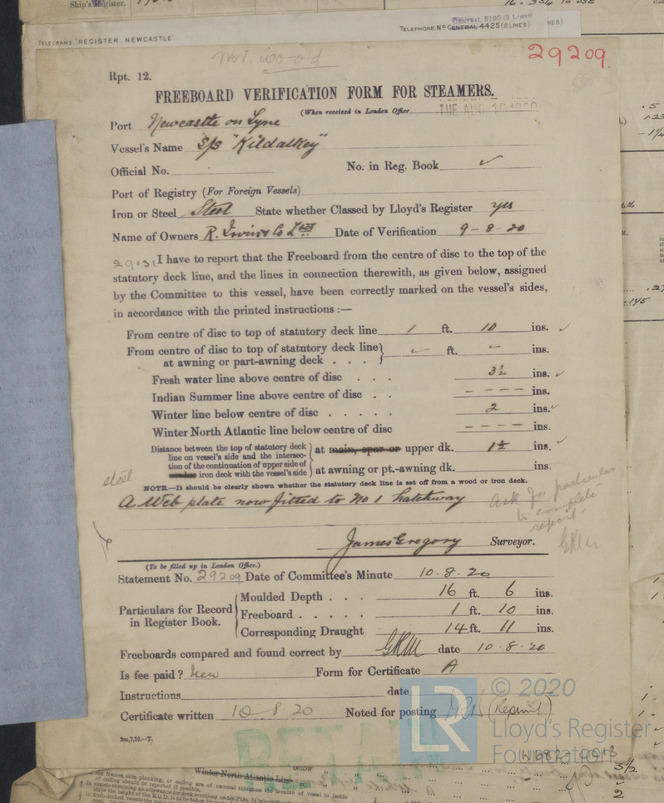 Ship's Register.
TELEGRAMS "REGISTER, NEWCASTLE"
TELEPHONE Nº CENTRAL 4425 (2 LINES)
CENTRAL 5190 (3 LINES)
Not wood
29209.
Rpt. 12.
FREEBOARD VERIFICATION FORM FOR STEAMERS.
(When received in London Office
TUE AUG 10 1920
Port Newcastle on Tyne
Vessel's Name S/S "Kildalkey"
Official No. No. in Reg. Book ✓
Port of Registry (For Foreign Vessels)
Iron or Steel Steel State whether Classed by Lloyd's Register yes
Name of Owners R. Irvin & Co Ltd Date of Verification 9-8-20
I have to report that the Freeboard from the centre of disc to the top of the
statutory deck line, and the lines in connection therewith, as given below, assigned
by the Committee to this vessel, have been correctly marked on the vessel's sides,
in accordance with the printed instructions :—
From centre of disc to top of statutory deck line 1 ft. 10 ins. ✓
From centre of disc to top of statutory deck line } – ft. – ins.
at awning or part-awning deck . . .
Fresh water line above centre of disc . . . 3½ ins. ✓
Indian Summer line above centre of disc . . - - - - ins.
Winter line below centre of disc . . . . . 2 ins. ✓
Winter North Atlantic line below centre of disc - - - - ins.
Distance between the top of statutory deck
line on vessel's side and the intersec-
tion of the continuation of upper side of
iron deck with the vessel's side
steel
at main, spar or upper dk. ins. ✓
at awning or pt.-awning dk. ins.
NOTE.—It should be clearly shewn whether the statutory deck line is set off from a wood or iron deck.
A Web plate now fitted to No 1 hatchway
Ask for particulars
to complete
report.
James Gregory Surveyor.
(To be filled up in London Office.)
Statement No. 29209 Date of Committee's Minute 10.8.20
Particulars for Record
in Register Book.
Moulded Depth . . . 16 ft. 6 ins.
Freeboard . . . . . 1 ft. 10 ins.
Corresponding Draught 14 ft. 11 ins.
Freeboards compared and found correct by GRM date 10.8.20
Is fee paid? New Form for Certificate A
Instructions date
Certificate written 10.8.20 Noted for posting (Reprint)
2m,7,19.–T.
© 2020
LR
Lloyd's Register
Foundation
W682-0013
RETAIN
Winter North Atlantic Line
BELOW